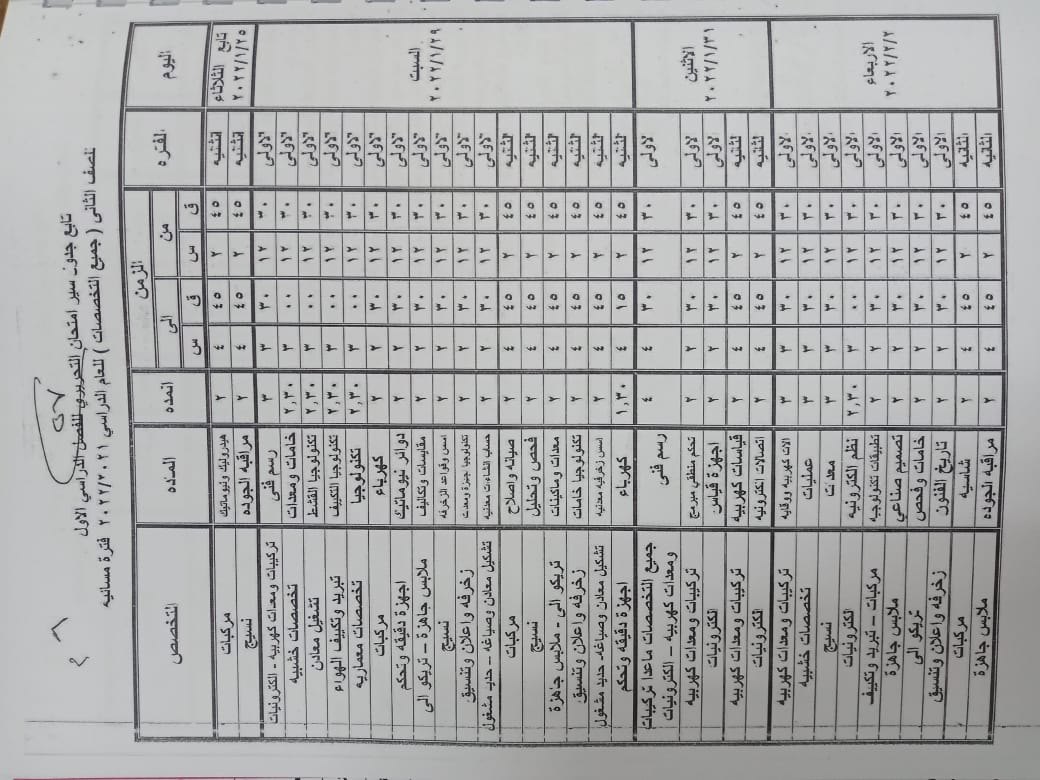 تابع جدول سير امتحان التحريري للفصل الدراسي الاول
للصف الثانى ( جميع التخصصات ) للعام الدراسي ٢٠٢٢/٢٠٢١ فترة مسائيه
اليوم الفتره الزمن المده الماده التخصص
من الى
ق س ق س
تابع الثلاثاء ٢٠٢٢/١/٢٥
الثانيه ٤٥ ٢ ٤٥ ٤ ٢ هيدروليك ونيوماتيك مركبات
الثانيه ٤٥ ٢ ٤٥ ٤ ٢ مراقبه الجوده نسيج
السبت ٢٠٢٢/١/٢٩
الاولى ٣٠ ١٢ ٣٠ ٣ ٣ رسم فنى تركيبات ومعدات كهربيه - الكترونيات
الاولى ٣٠ ١٢ ٠٠ ٣ ٢,٣٠ خامات ومعدات تخصصات خشبيه
الاولى ٣٠ ١٢ ٠٠ ٣ ٢,٣٠ تكنولوجيا القشط تشغيل معادن
الاولى ٣٠ ١٢ ٠٠ ٣ ٢,٣٠ تكنولوجيا التكييف تبريد وتكييف الهواء
الاولى ٣٠ ١٢ ٠٠ ٣ ٢,٣٠ تكنولوجيا تخصصات معماريه
الاولى ٣٠ ١٢ ٣٠ ٢ ٢ كهرباء مركبات
الاولى ٣٠ ١٢ ٣٠ ٢ ٢ دوائر نيوماتيك اجهزة دقيقه وتحكم
الاولى ٣٠ ١٢ ٣٠ ٢ ٢ مقايسات وتكاليف ملابس جاهزة - تريكو الى
الاولى ٣٠ ١٢ ٣٠ ٢ ٢ اسس وقواعد الزخرفه زخرفه واعلان وتنسيق
الاولى ٣٠ ١٢ ٣٠ ٢ ٢ تشكيل معادن وصياغه - حديد مشغول
الثانيه ٤٥ ٢ ٤٥ ٤ ٢ صيانه واصلاح مركبات
الثانيه ٤٥ ٢ ٤٥ ٤ ٢ فحص وتحليل نسيج
الثانيه ٤٥ ٢ ٤٥ ٤ ٢ معدات وماكينات تريكو الى - ملابس جاهزة
الثانيه ٤٥ ٢ ٤٥ ٤ ٢ تكنولوجيا خامات زخرفه واعلان وتنسيق
الثانيه ٤٥ ٢ ٤٥ ٤ ٢ اسس زخرفيه معدنيه تشكيل معادن وصياغه- حديد مشغول
الثانيه ٤٥ ٢ ١٥ ٤ ١,٣٠ كهرباء اجهزة دقيقه وتحكم
الاثنين ٢٠٢٢/١/٣١
الاولى ٣٠ ١٢ ٣٠ ٤ ٤ رسم فنى جميع التخصصات ماعدا تركيبات
ومعدات كهربيه - الكترونيات
الاولى ٣٠ ١٢ ٣٠ ٢ ٢ تحكم منطقى مبرمج تركيبات ومعدات كهربيه
الاولى ٣٠ ١٢ ٣٠ ٢ ٢ اجهزة قياس الكترونيات
الثانيه ٤٥ ٢ ٤٥ ٤ ٢ قياسات كهربيه تركيبات ومعدات كهربيه
الثانيه ٤٥ ٢ ٤٥ ٤ ٢ اتصالات الكترونيه الكترونيات
الاربعاء ٢٠٢٢/٢/٢
الاولى ٣٠ ١٢ ٣٠ ٣ ٣ الات كهربيه ووقايه تركيبات ومعدات كهربيه
الاولى ٣٠ ١٢ ٣٠ ٣ ٣ عمليات تخصصات خشبيه
الاولى ٣٠ ١٢ ٣٠ ٢ ٢ معدات نسيج
الاولى ٣٠ ١٢ ٠٠ ٣ ٢,٣٠ نظم الكترونيه الكترونيات
الاولى ٣٠ ١٢ ٣٠ ٢ ٢ تطبيقات تكنولوجيه مركبات - تبريد وتكييف
الاولى ٣٠ ١٢ ٣٠ ٢ ٢ تصميم صناعي ملابس جاهزة
الاولى ٣٠ ١٢ ٣٠ ٢ ٢ خامات وفحص تريكو الى
الاولى ٣٠ ١٢ ٣٠ ٢ ٢ تاريخ الفنون زخرفه واعلان وتنسيق
الثانيه ٤٥ ٢ ٤٥ ٤ ٢ شاسيه مركبات
الثانيه ٤٥ ٢ ٤٥ ٤ ٢ مراقبه الجوده ملابس جاهزة